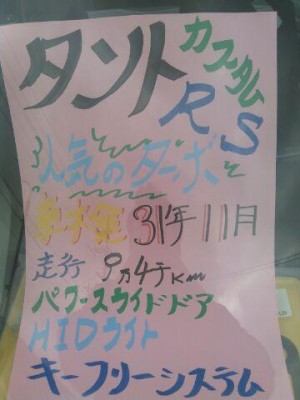 タント カスタム
RS
人気のターボ
車検 31年11月
走行 9万4千km
パワースライドドア
HIDライト
キーフリーシステム